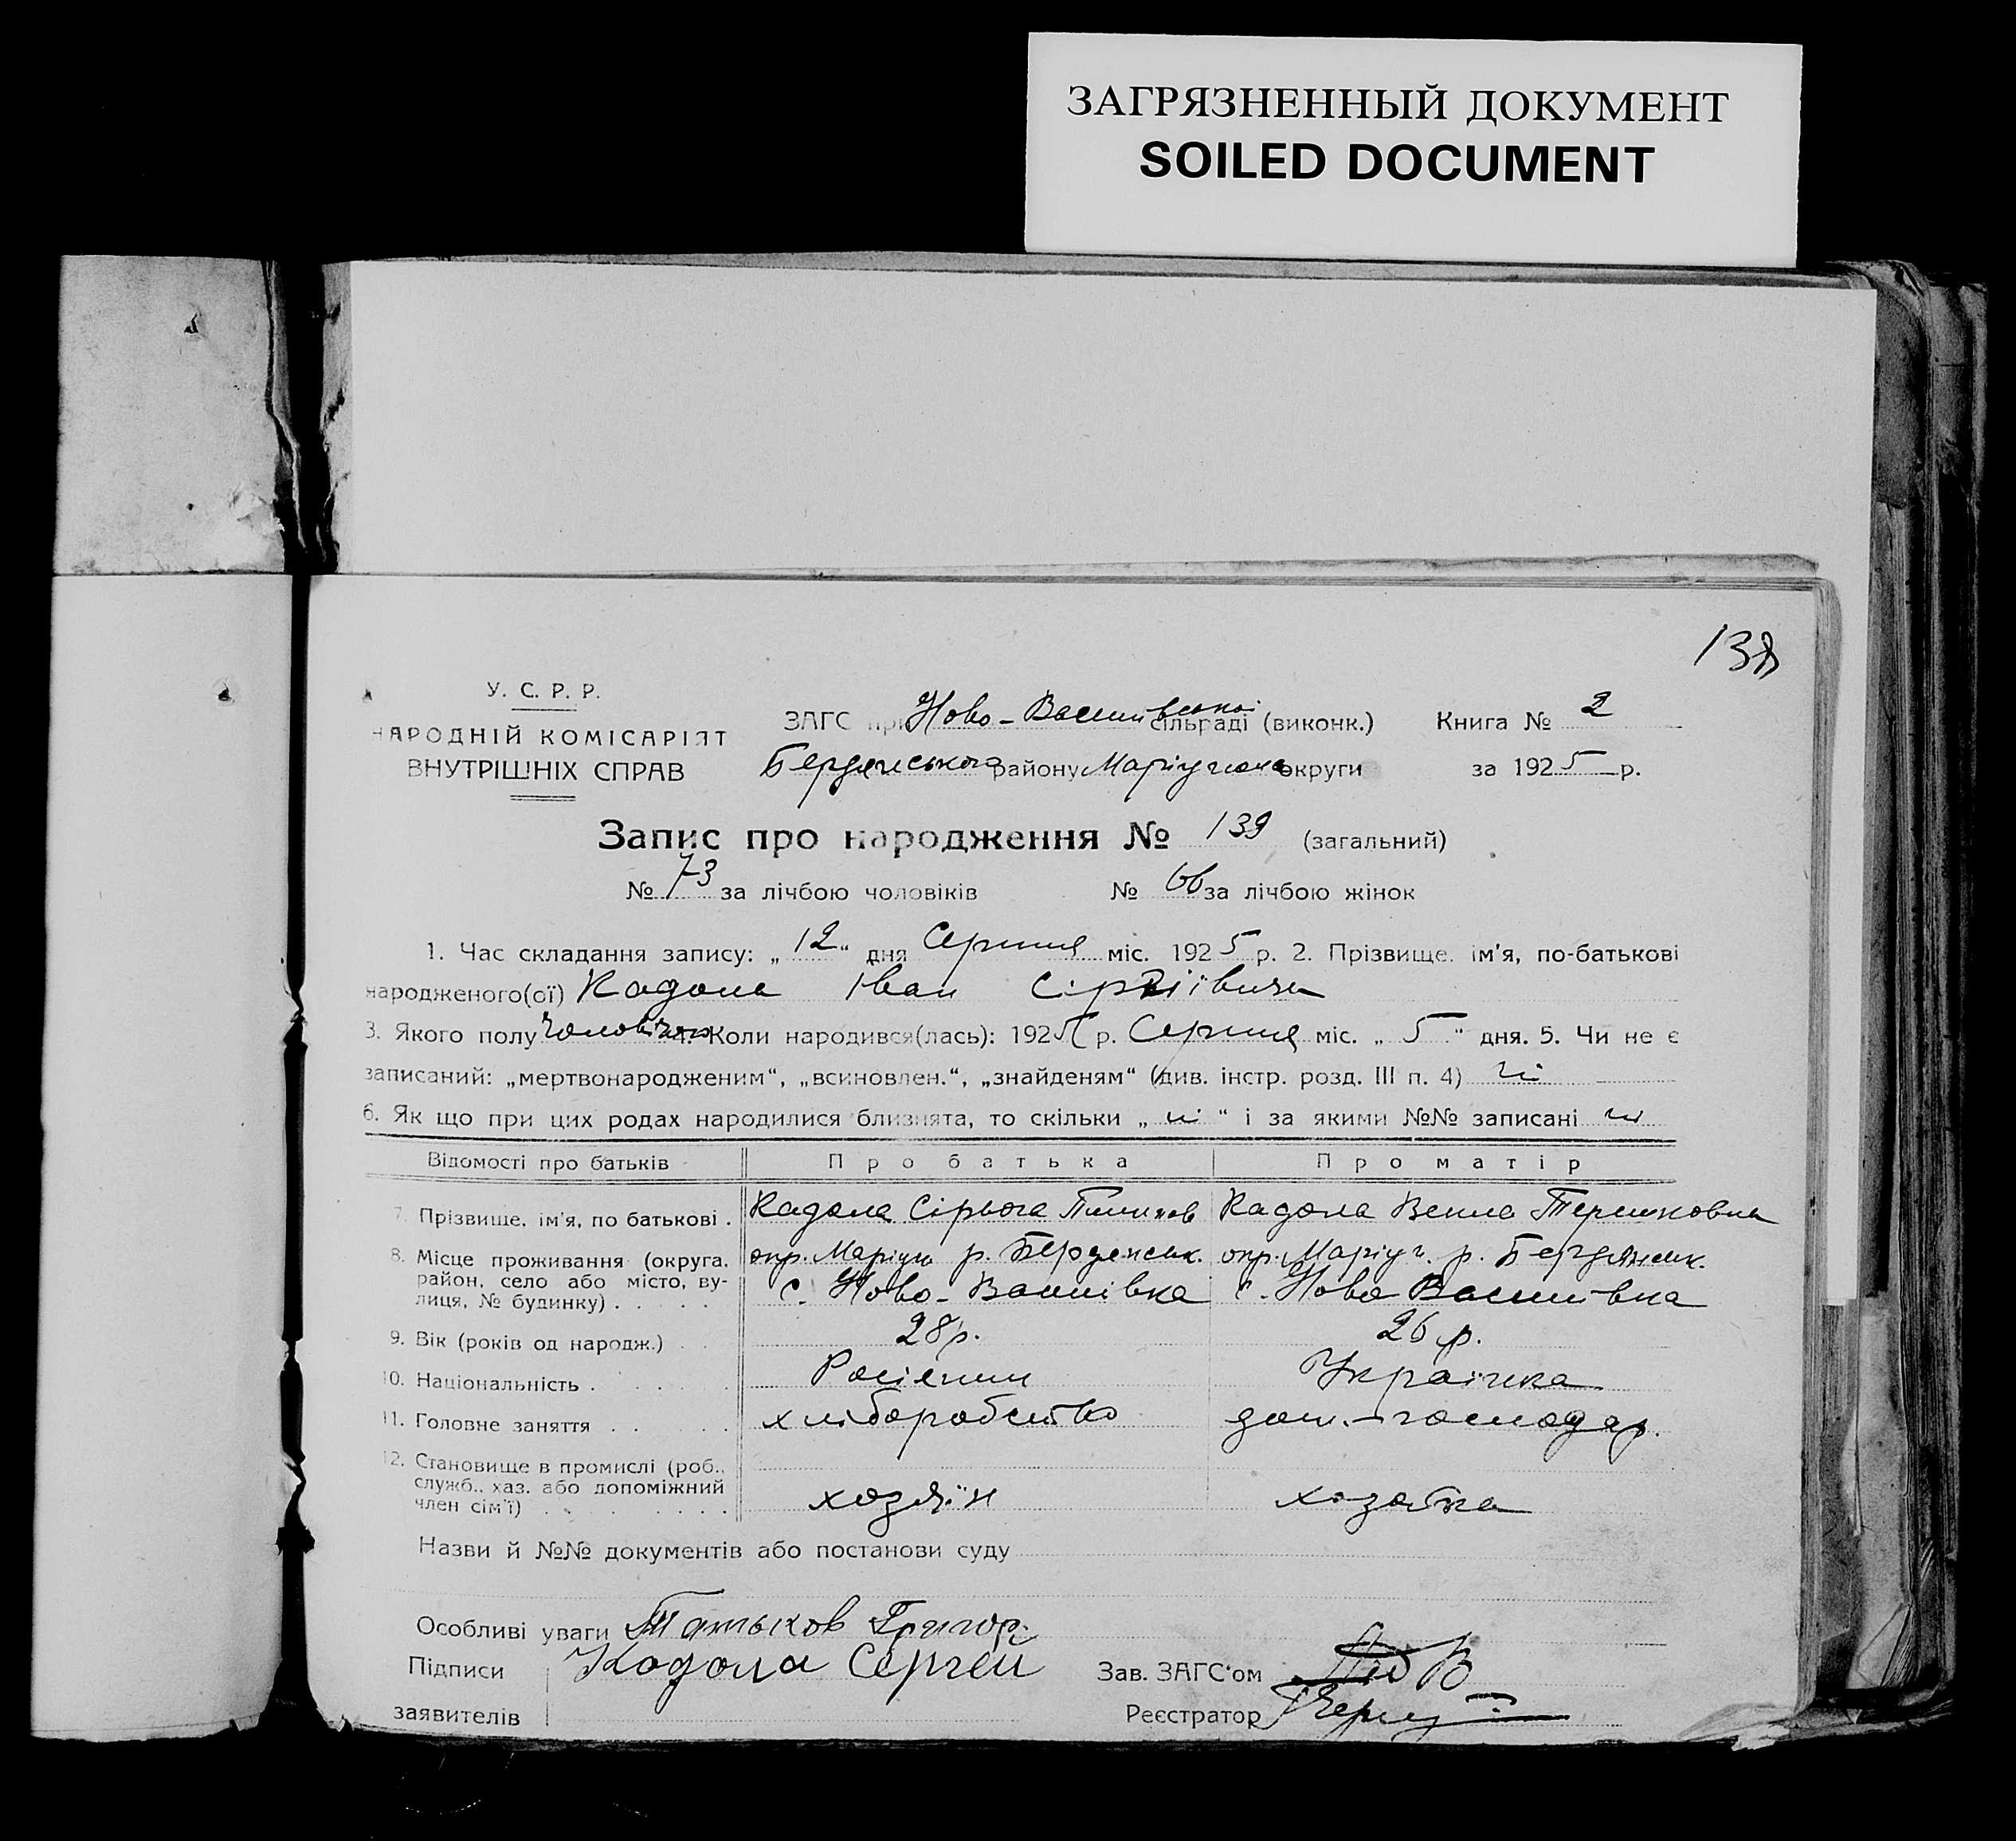 ЗАГРЯЗНЕННЫЙ ДОКУМЕНТ
SOILED DOCUMENT
138
У. С. Р. Р.
НАРОДНІЙ КОМІСАРІЯТ
ВНУТРІШНІХ СПРАВ
ЗАГС при Ново-Василівській сільраді (виконк.) Книга № 2
Бердянського району Маріупільс округи за 1925 р.
Запис про народження № 139 (загальний)
№ 73 за лічбою чоловіків № 66 за лічбою жінок
1. Час складання запису: „12“ дня Серпня міс. 1925 р. 2. Прізвище, ім'я, по-батькові
народженого(ої) Кадола Іван Сіргіївич
3. Якого полу Чоловічого 4. Коли народився(лась): 1925 р. Серпня міс. „5“ дня. 5. Чи не є
записаний: „мертвонародженим“, „всиновлен.“, „знайденям“ (див. інстр. розд. III п. 4) ні
6. Як що при цих родах народилися близнята, то скільки „ні“ і за якими №№ записані ні
Відомості про батьків Про батька Про матір
7. Прізвище, ім'я, по батькові . Кадола Сірьога Кадола
8. Місце проживання (округа, район, село або місто, вулиця, № будинку) . . . . окр. Маріуп р. Бердянськ. окр. Маріуп. р. Бердянськ.
с. Ново-Василівка с. Ново Василівка
9. Вік (років од народж.) . . 28 р. 26 р.
10. Національність . . . . . . Росіянин Українка
11. Головне заняття . . . . . хліборобство дом.-господар.
12. Становище в промислі (роб., служб., хаз. або допоміжний член сім'ї) . . . . . . . хозяїн хозяйка
Назви й №№ документів або постанови суду
Особливі уваги Татьков Григор.
Підписи Кадола Сергей Зав. ЗАГС'ом
заявителів Реєстратор